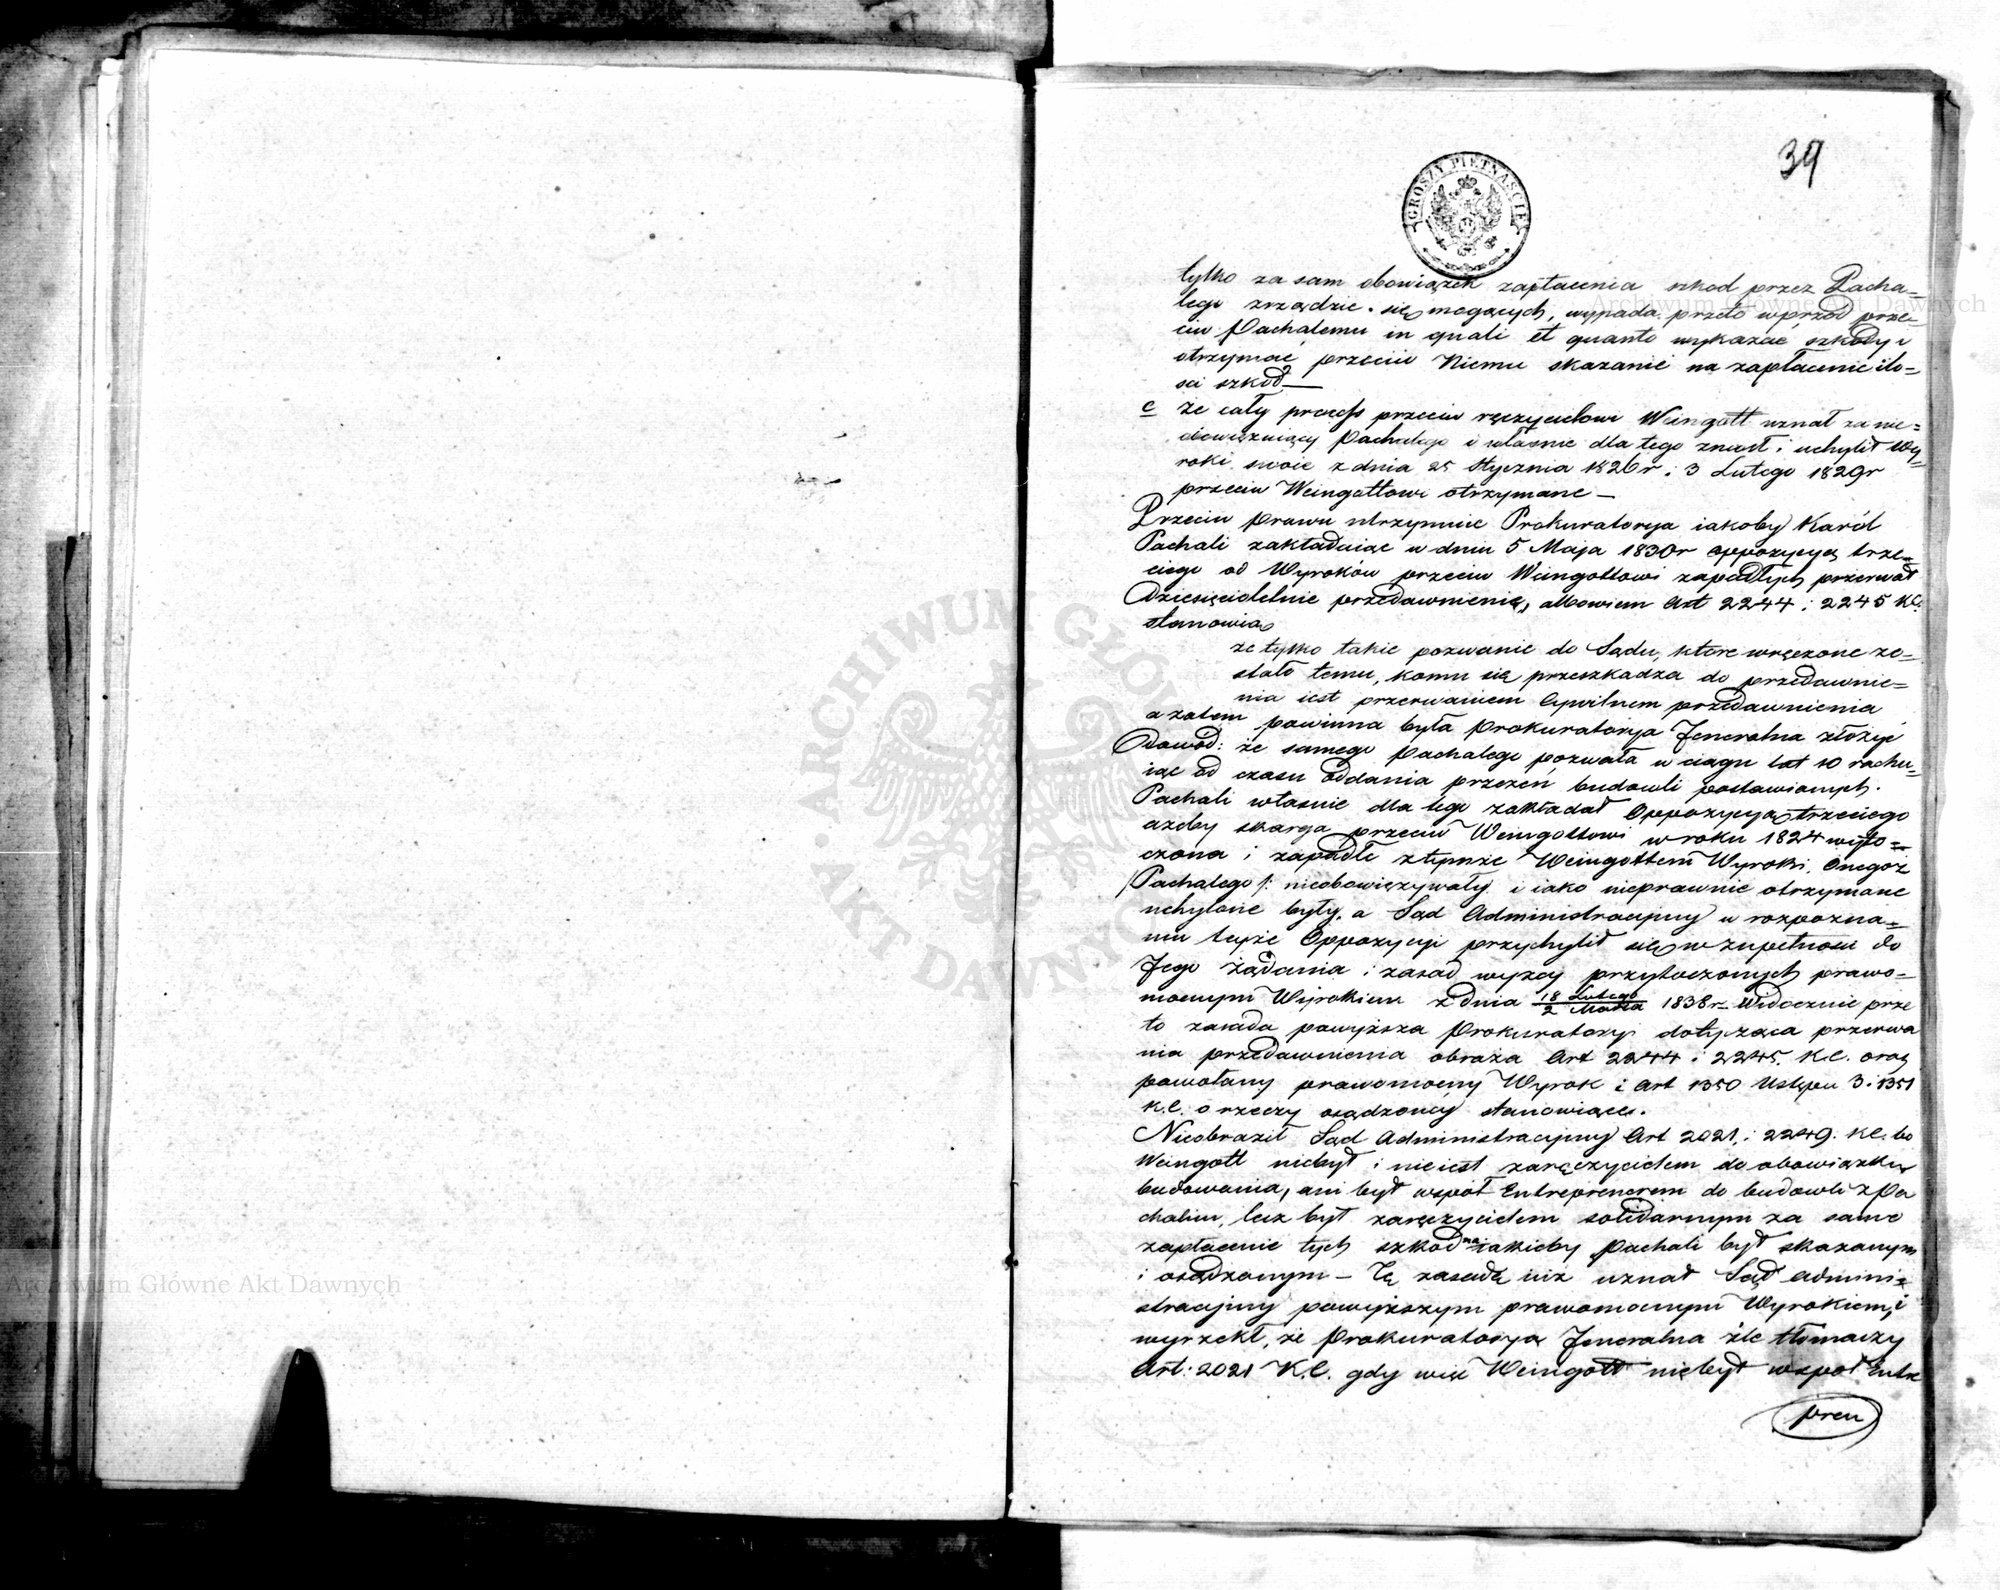 39
GROSZY PIĘTNAŚCIE
tylko za sam obowiązek zapłacenia szkod przez Pacha-
lego zrządzić się mogących, wypada przeto wprzód prze-
ciw Pachalemu in quali et quanto wykazać szkody i
otrzymać przeciw Niemu skazanie na zapłacenie ilo=
sci szkod —
c že cały process przeciw ręczycielowi Weingott uznał za nie=
obowiązuiący Pachalego i własnie dla tego zniosł i uchylił Wy=
roki swoie z dnia 25 Stycznia 1826 r. i 3 Lutego 1829 r
przeciw Weingottowi otrzymane —
Przeciw prawu utrzymuie Prokuratorya iakoby Karól
Pachali zakładaiąc w dniu 5 Maja 1830 r oppozycyą trze=
ciego od Wyroków przeciw Weingottowi zapadłych przerwał
Dziesięcioletnie przedawnienie, albowiem Art 2244 i 2245 K.C.
stanowią
że tylko takie pozwanie do Sądu, które wręczone zo=
stało temu, komu się przeszkadza do przedawnie=
nia iest przerwaniem Cywilnem przedawnienia
a zatem powinna była Prokuratorya Jeneralna złożyć
Dowód: że samego Pachalego pozwała w ciągu lat 10 rachu=
iąc od czasu oddania przezeń budowli postawionych.
Pachali własnie dla tego zakładał Oppozycyą trzeciego
ażeby skarga przeciw Weingottowi w roku 1824 wyto=
czona i zapadłe z tymże Weingottem Wyroki, Onegoż
/Pachalego/: nieobowięzywały i iako nieprawnie otrzymane
uchylone były, a Sąd Administracyjny w rozpozna=
niu tejże Oppozycyi przychylił się w zupełnosci do
Jego żądania i zasad wyżej przytoczonych prawo=
mocnym Wyrokiem z dnia 18 Lutego / 2 Marca 1838 r. Widocznie prze
to zasada powyższa Prokuratoryi dotycząca przerwa
nia przedawnienia obraża Art 2244 i 2245 K.C. oraz
powołany prawomocny Wyrok i Art 1350 Ustępu 3 i 1351
K.C. o rzeczy osądzonej stanowiące.
Nieobraził Sąd Administracyjny Art 2021 i 2249. K.C. bo
Weingott niebył i nieiest zaręczycielem do obowiązku
budowania, ani był wspoł Entreprenerem do budowli z Pa
chalim, lecz był zaręczycielem solidarnym za samo
zapłacenie tych szkod na iakieby Pachali był skazanym
i osądzonym — Tę zasadę iuż uznał Sąd Admini=
stracyjny powyższym prawomocnym Wyrokiem, i
wyrzekł, że Prokuratorya Jeneralna źle tłomaczy
Art: 2021 K.C. gdy więc Weingott niebył wspoł Entre
pren